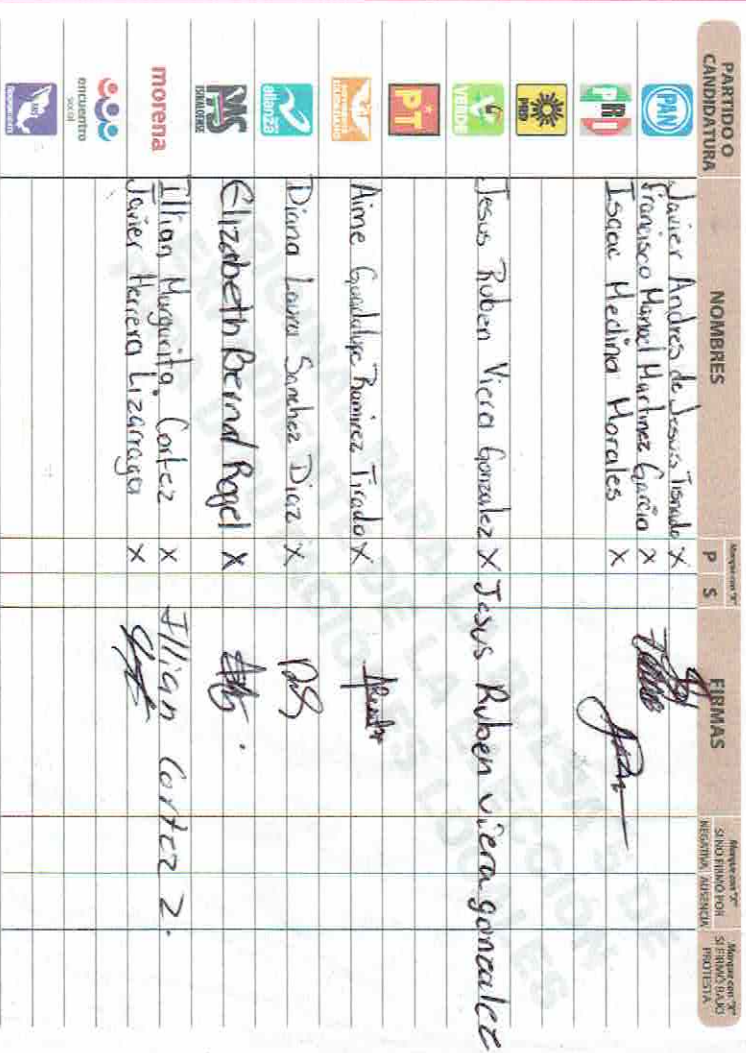 PARTIDO O CANDIDATURA
NOMBRES
Marque con "X"
P S
FIRMAS
Marque con "X" SI NO FIRMÓ POR
NEGATIVA AUSENCIA
Marque con "X" SI FIRMÓ BAJO PROTESTA
PAN
Javier Andres de Jesus Tisnado X
Francisco Manuel Martinez Garcia X
PRI
Isaac Medina Morales X
PRD
VERDE
Jesus Ruben Viera Gonzalez X Jesus Ruben viera gonzalez
PT
MOVIMIENTO CIUDADANO
Aime Guadalupe Ramirez Tirado X
alianza
Diana Laura Sanchez Diaz X
PAS SINALOENSE
Elizabeth Bernal Rogel X
morena
Illian Margarita Cortez X Illian Cortez Z.
Javier Herrera Lizarraga X
encuentro social
ORIGINAL PARA LA BOLSA DE
EXPEDIENTE DE LA ELECCIÓN
PARA DIPUTACIONES LOCALES